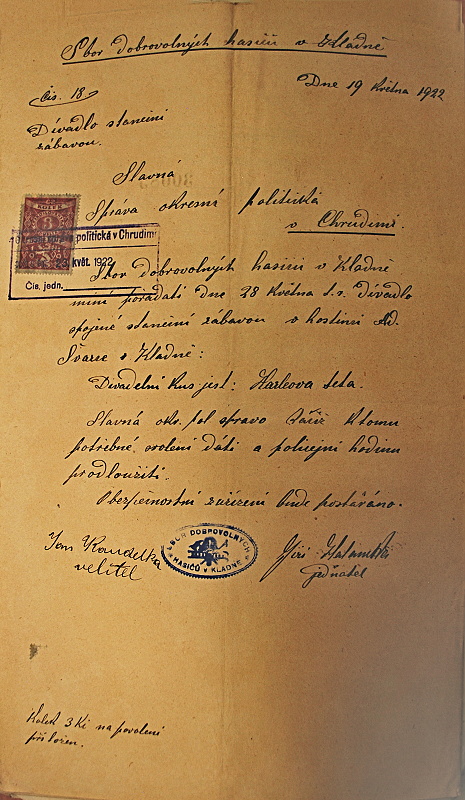 Sbor dobrovolných hasičů v Kladně
Dne 19 května 1922
Čís. 18
Divadlo s taneční
zábavou.
Slavná
Správa okresní politická
v Chrudimi.
politická v Chrudimi
květ. 1922
Čís. jedn.
Sbor dobrovolných hasičů v Kladně
míní pořádati dne 28 května t.r. Divadlo
spojené s taneční zábavou v hostinci Ad.
Švarce v Kladně:
Divadelní kus jest: Karlova teta.
Slavná okr. pol. správo račiž k tomu
potřebné svolení dáti a policejní hodinu
prodloužiti.
Bezpečnostní zařízení bude postaráno.
Jan Koudelka
velitel
SBOR DOBROVOLNÝCH
HASIČŮ V KLADNĚ
Jiří
jednatel
Kolek 3 Kč na povolení
přiložen.